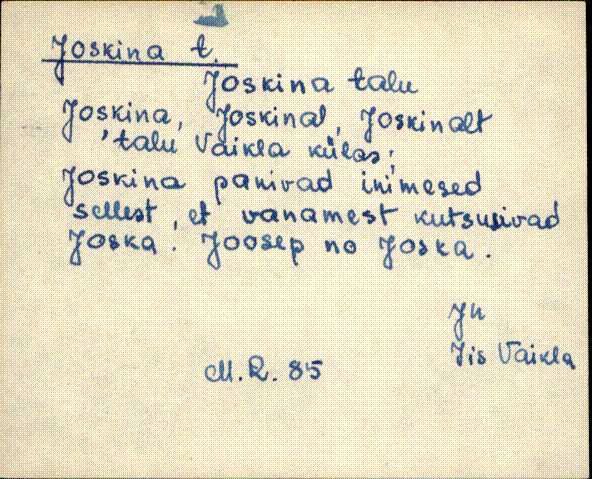 Joskina t.
Joskina talu
Joskina, Joskinal, Joskinalt
'talu Vaikla külas;
Joskina panivad inimesed
sellest, et vanamest kutsusivad
Joska. Joosep no Joska.
Jõh
Iis Vaikla
M. R. 85